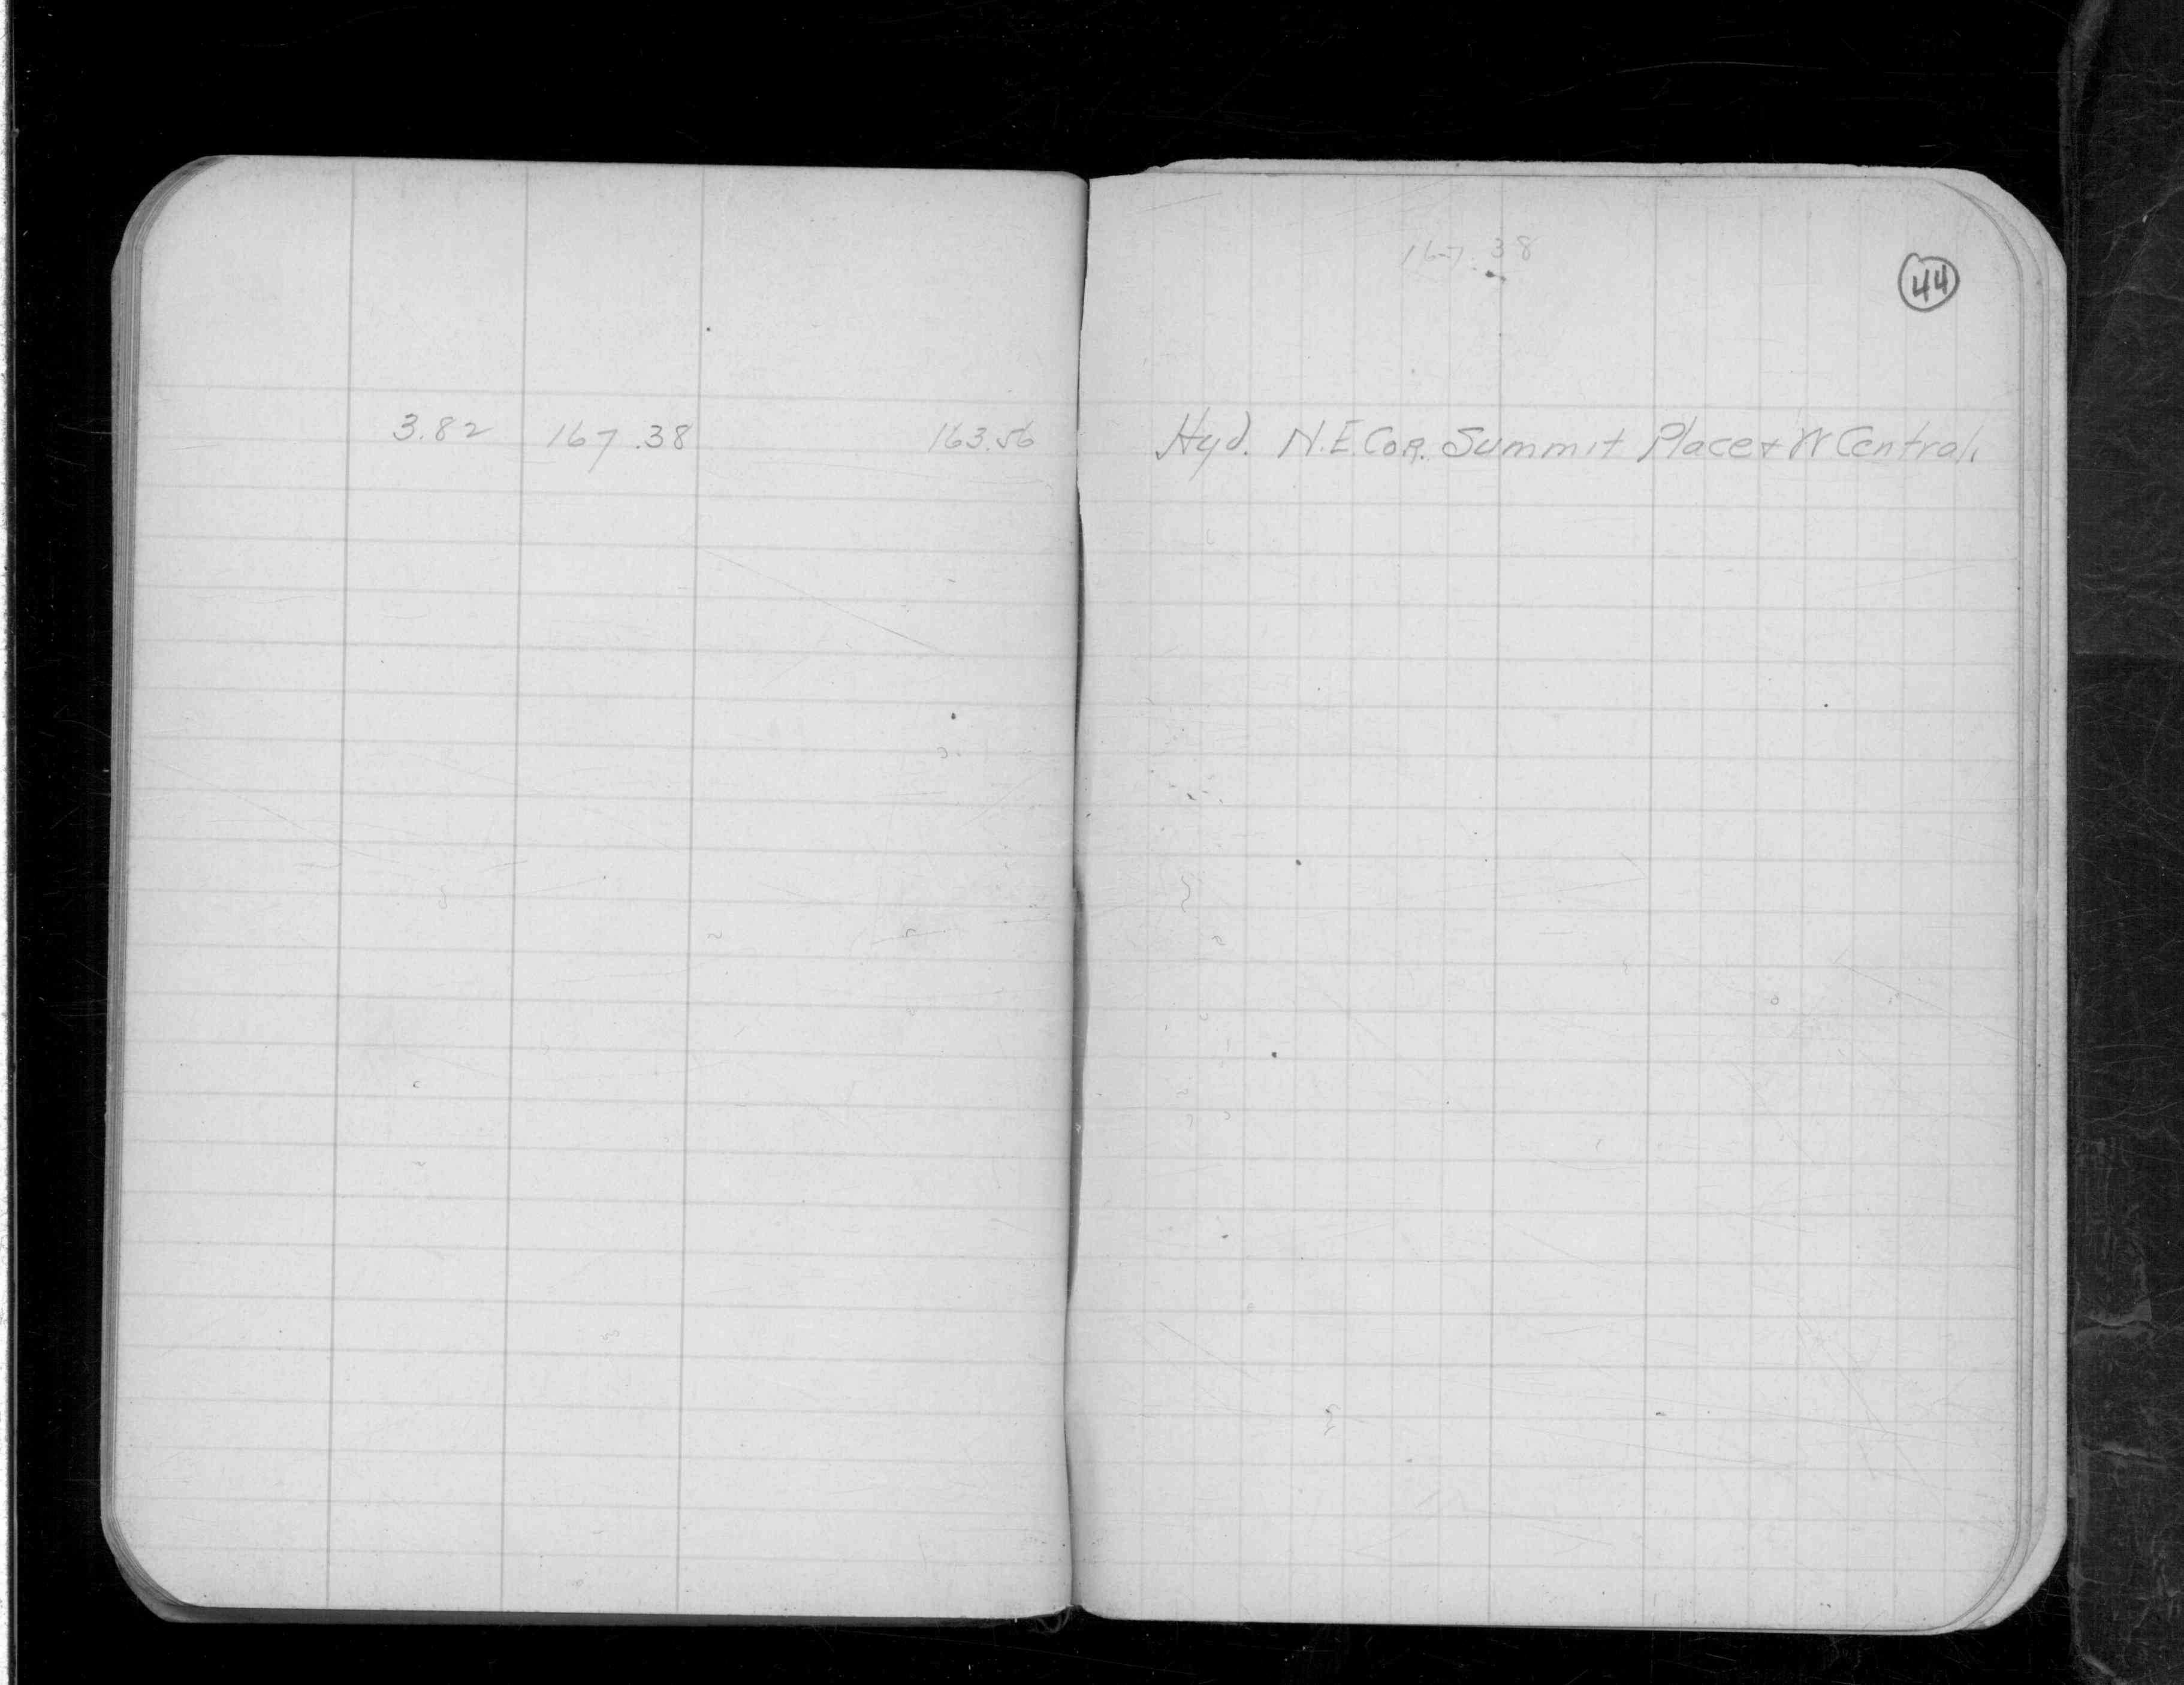 3.82 167.38 163.56
167.38
44
Hyd. N.E. COR. Summit Place & W Central.